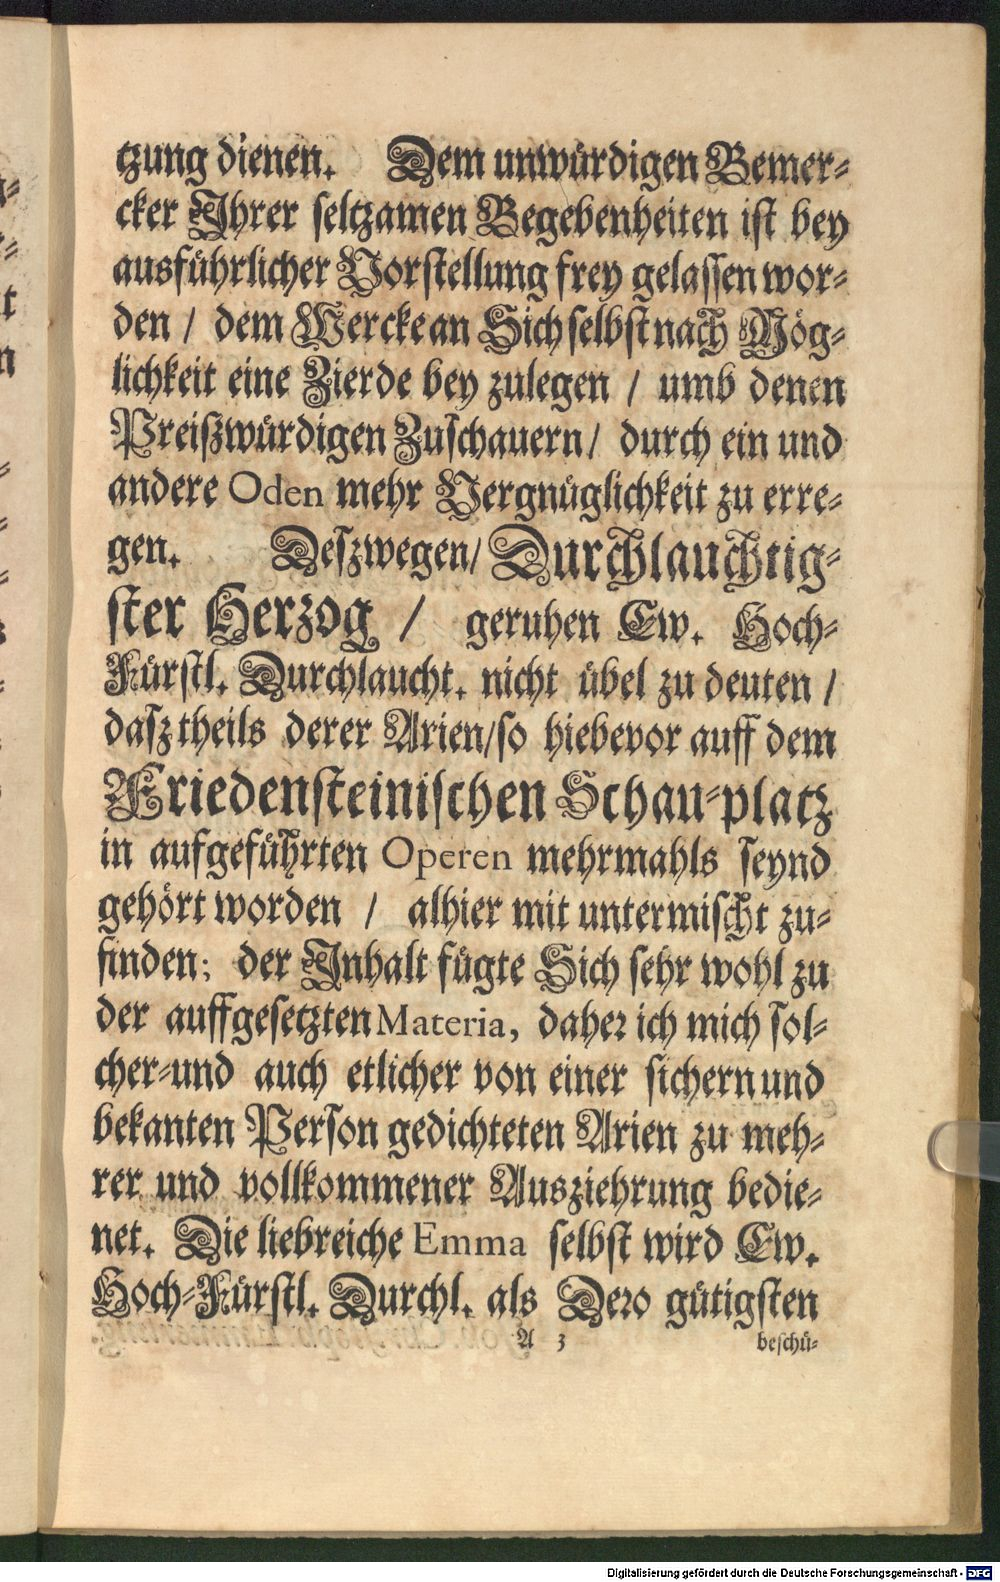 tzung dienen. Dem unwürdigen Bemer-
cker Ihrer seltzamen Begebenheiten ist bey
ausführlicher Vorstellung frey gelassen wor-
den / dem Wercke an Sich selbst nach Mög-
lichkeit eine Zierde bey zulegen / umb denen
Preißwürdigen Zuschauern / durch ein und
andere Oden mehr Vergnüglichkeit zu erre-
gen. Deszwegen / Durchlauchtig-
ster Herzog / geruhen Ew. Hoch-
Fürstl. Durchlaucht. nicht übel zu deuten /
dasz theils derer Arien / so hiebevor auff dem
Friedensteinischen Schau-platz
in aufgeführten Operen mehrmahls seynd
gehört worden / alhier mit untermischt zu-
finden; der Inhalt fügte Sich sehr wohl zu
der auffgesetzten Materia, daher ich mich sol-
cher-und auch etlicher von einer sichern und
bekanten Person gedichteten Arien zu meh-
rer und vollkommener Ausziehrung bedie-
net. Die liebreiche Emma selbst wird Ew.
Hoch-Fürstl. Durchl. als Dero gütigsten
A 3 beschü-
Digitalisierung gefördert durch die Deutsche Forschungsgemeinschaft - DFG